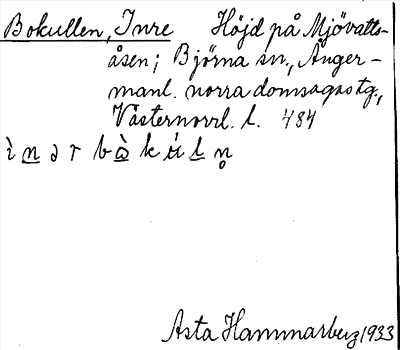 Bokullen, Inre Höjd på Mjövatts-
åsen; Björna sn., Ånger-
manl. norra domsagas tg.,
Västernorrl. l. 484
ì n ə r b ò̱ k ù l n̥
Asta Hammarberg 1933